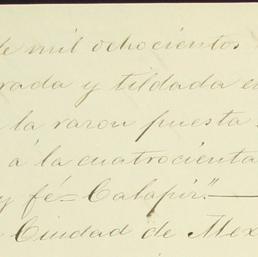 de mil ochocientos
rada y tildada en
la razon puesta
á la cuatrocienta
y fé=Calapir."—
Ciudad de Mex